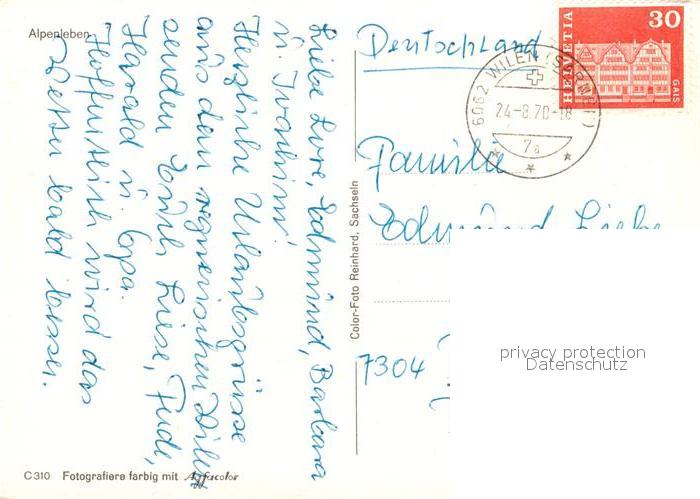 Alpenleben
Liebe Lore, Edmund, Barbara
u. Joachim!
Herzliche Urlaubsgrüsse
aus dem regnerischen Wilen
senden Euch Liese, Trudi,
Harald u. Opa.
Hoffentlich wird das
Wetter bald besser.
C 310 Fotografiere farbig mit Agfacolor
Color-Foto Reinhard, Sachseln
Deutschland
HELVETIA
30
GAIS
6062 WILEN (SARNEN)
24-8.70-18
7a
Familie
Edmund Liebe
7304
privacy protection
Datenschutz